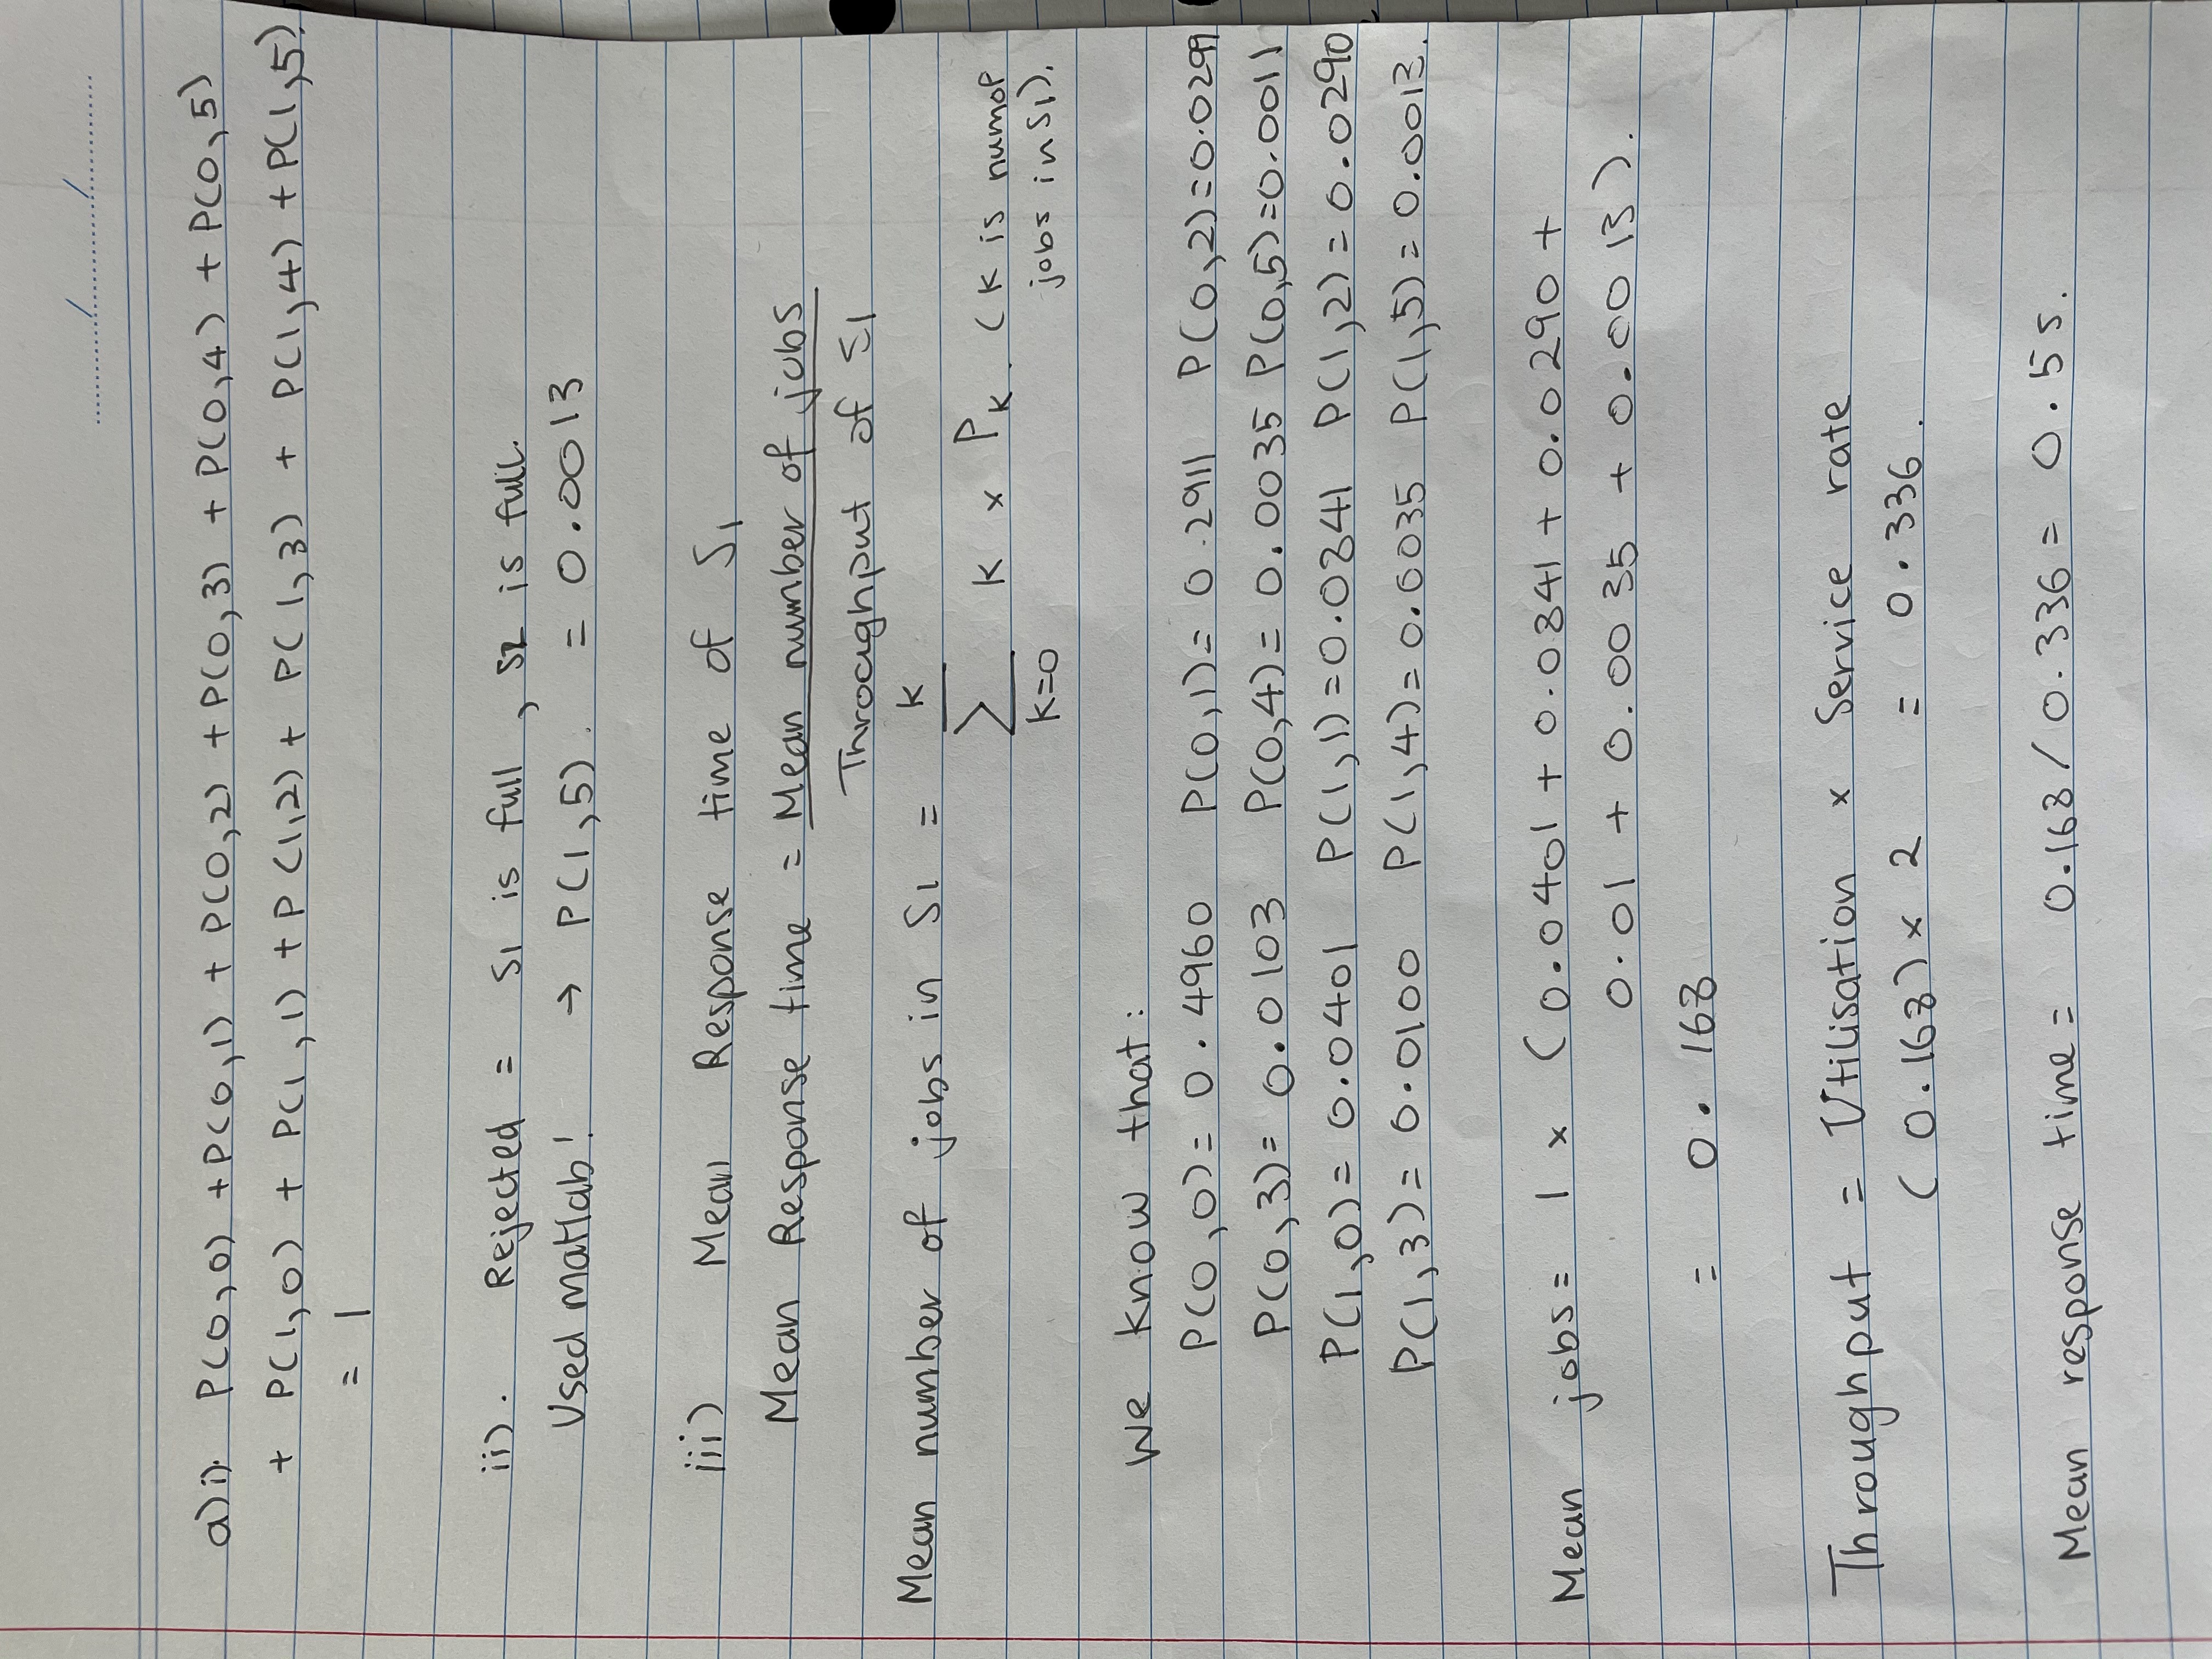 a)i). P(0,0) + P(0,1) + P(0,2) + P(0,3) + P(0,4) + P(0,5)
+ P(1,0) + P(1,1) + P(1,2) + P(1,3) + P(1,4) + P(1,5).
= 1
ii). Rejected = S1 is full, S2 is full.
Used matlab! → P(1,5). = 0.0013
iii) Mean Response time of S1
Mean Response time = Mean number of jobs
Throughput of S1
Mean number of jobs in S1 = K Σ K=0 K × PK. (K is num of jobs in S1).
We know that:
P(0,0) = 0.4960 P(0,1) = 0.2911 P(0,2) = 0.0299
P(0,3) = 0.0103 P(0,4) = 0.0035 P(0,5) = 0.0011
P(1,0) = 0.0401 P(1,1) = 0.0841 P(1,2) = 0.0290
P(1,3) = 0.0100 P(1,4) = 0.0035 P(1,5) = 0.0013.
Mean jobs = 1 × (0.0401 + 0.0841 + 0.0290 +
0.01 + 0.0035 + 0.0013).
= 0.168
Throughput = Utilisation × Service rate
(0.168) × 2 = 0.336.
Mean response time = 0.168 / 0.336 = 0.5s.